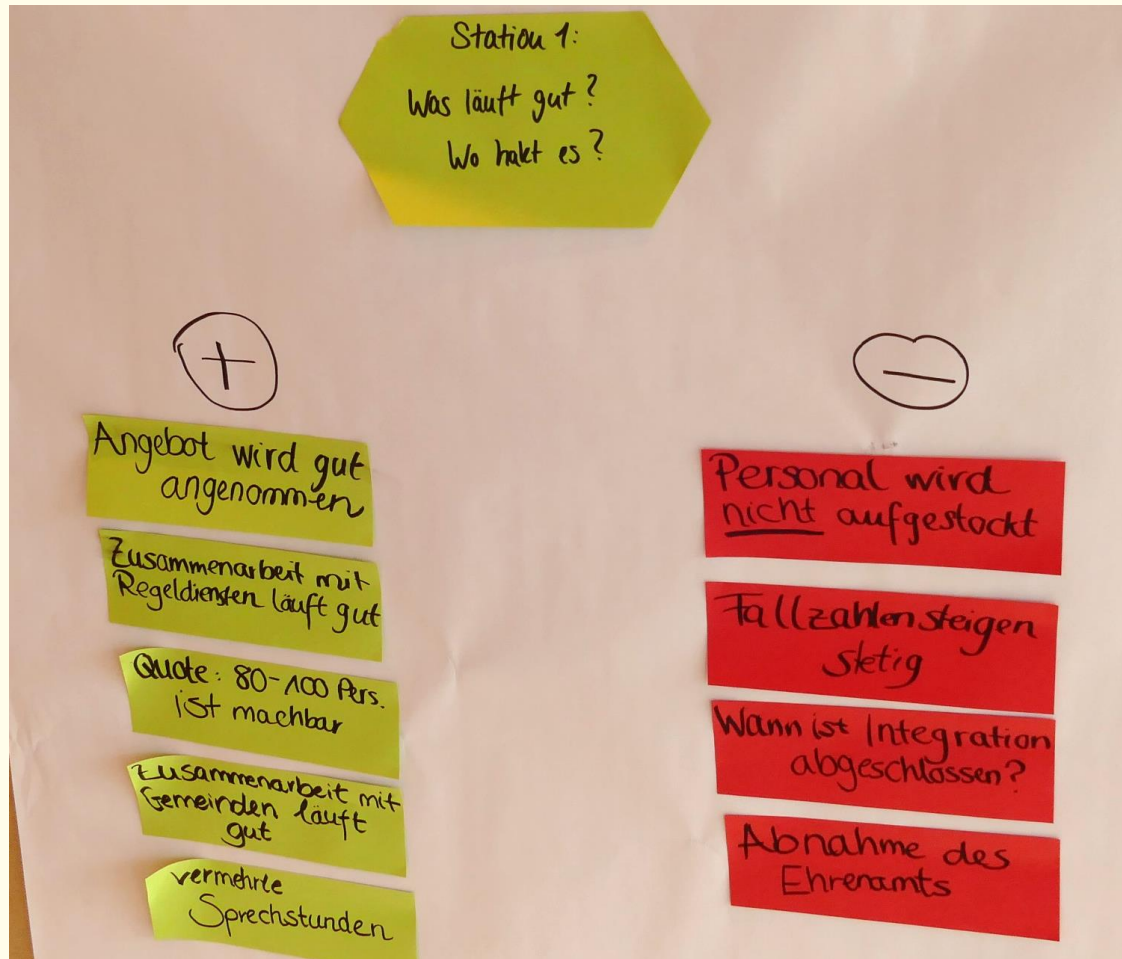 Station 1:
Was läuft gut?
Wo hakt es?
+
Angebot wird gut
angenommen
Zusammenarbeit mit
Regeldiensten läuft gut
Quote: 80-100 Pers.
ist machbar
Zusammenarbeit mit
Gemeinden läuft
gut
vermehrte
Sprechstunden
−
Personal wird
nicht aufgestockt
Fallzahlen steigen
stetig
Wann ist Integration
abgeschlossen?
Abnahme des
Ehrenamts